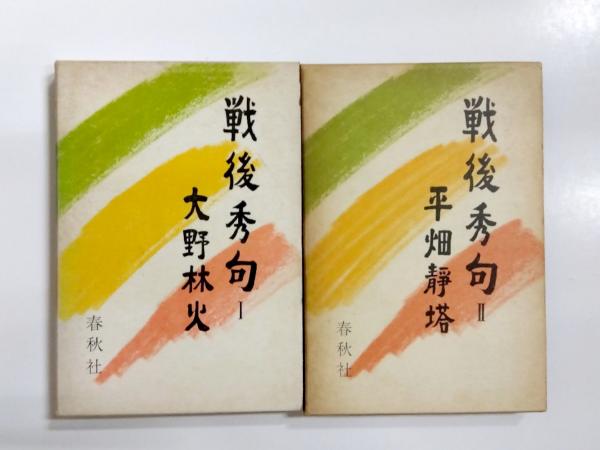 戦後秀句Ⅰ
大野林火
春秋社
戦後秀句Ⅱ
平畑靜塔
春秋社